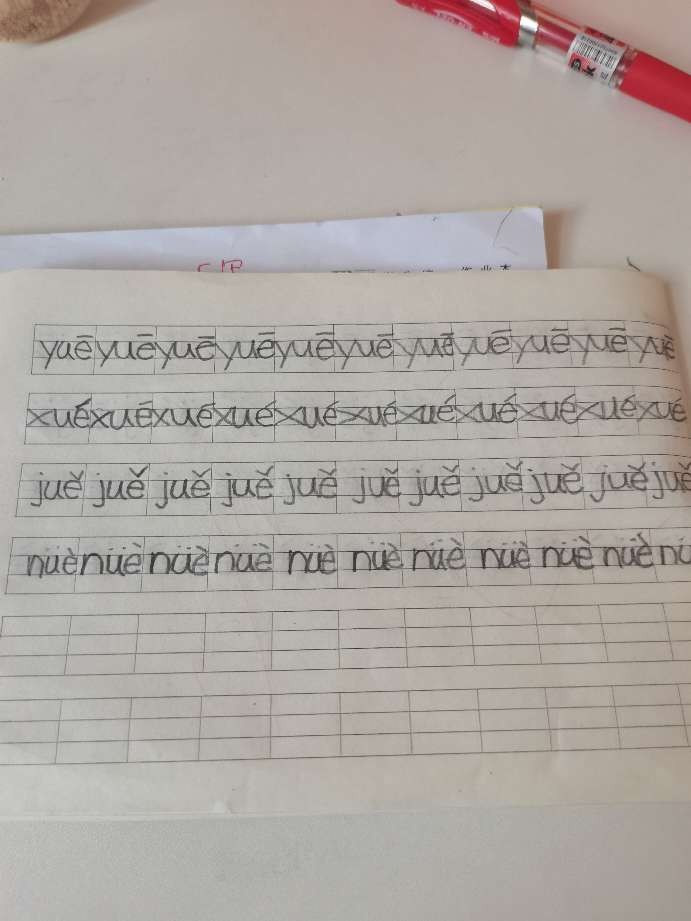 yuē yuē yuē yuē yuē yuē yuē yuē yuē yuē yuē
xué xuē xué xué xué xué xué xué xué xué xué
juě juě juě juě juě juě juě juě juě juě juě
nüè nüè nüè nüè nüè nüè nüè nüè nüè nüè